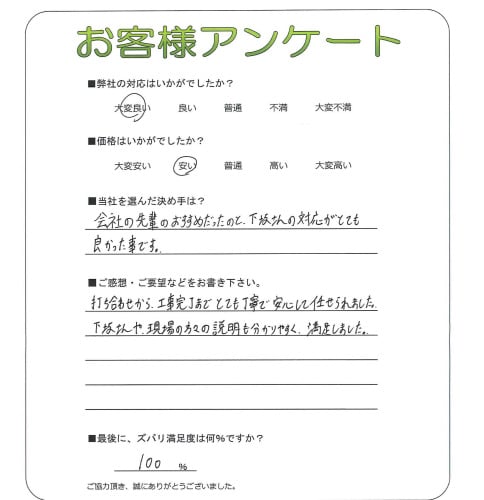 お客様アンケート
■弊社の対応はいかがでしたか？
大変良い 良い 普通 不満 大変不満
■価格はいかがでしたか？
大変安い 安い 普通 高い 大変高い
■当社を選んだ決め手は？
会社の先輩のおすすめだったのと、下坂さんの対応がとても
良かった事です。
■ご感想・ご要望などをお書き下さい。
打ち合わせから、工事完了までとても丁寧で安心して任せられました。
下坂さんや、現場の方々の説明も分かりやすく、満足しました。
■最後に、ズバリ満足度は何％ですか？
100 ％
ご協力頂き、誠にありがとうございました。